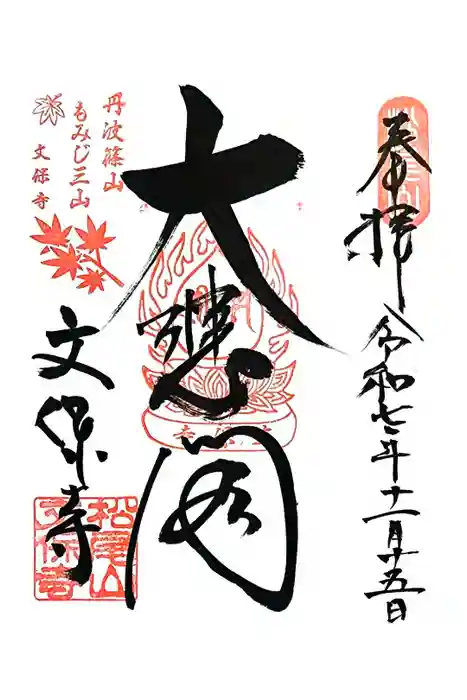 奉拝
令和七年十一月廿五日
大悲閣
丹波篠山
もみじ三山
文保寺
文保寺
松尾山
文保寺